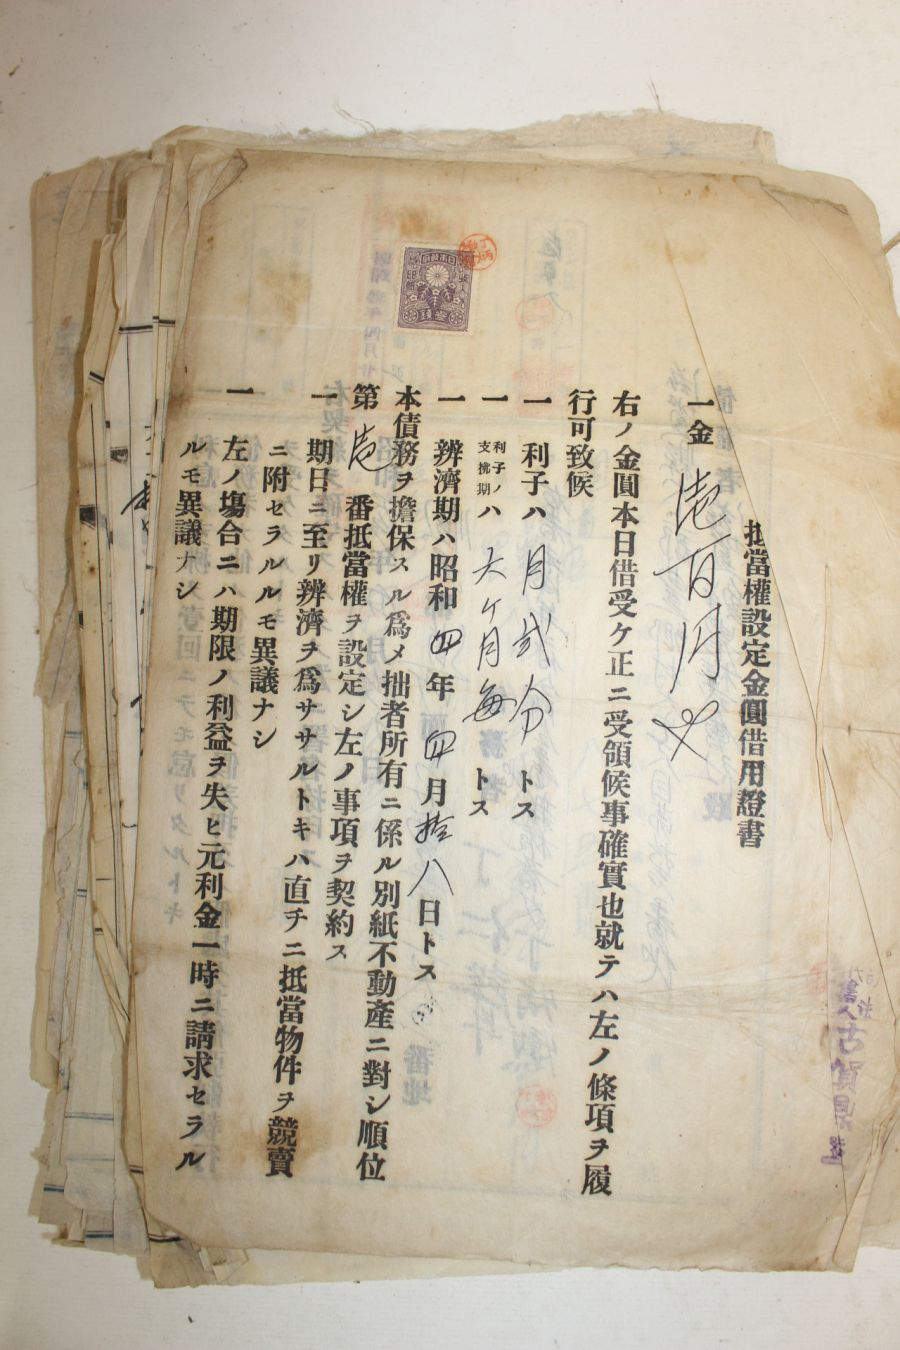 抵當權設定金圓借用證書
一金 壱百円也
右ノ金圓本日借受ケ正ニ受領候事確實也就テハ左ノ條項ヲ履
行可致候
一 利子ハ 月弐分 トス
一 利子ノ支拂期ハ 六ケ月毎 トス
一 辨濟期ハ昭和四年四月拾八日トス
本債務ヲ擔保スル爲メ拙者所有ニ係ル別紙不動產ニ對シ順位
第壱番抵當權ヲ設定シ左ノ事項ヲ契約ス
一 期日ニ至リ辨濟ヲ爲ササルトキハ直チニ抵當物件ヲ競賣
ニ附セラルルモ異議ナシ
一 左ノ塲合ニハ期限ノ利益ヲ失ヒ元利金一時ニ請求セラル
ルモ異議ナシ
書人古賀